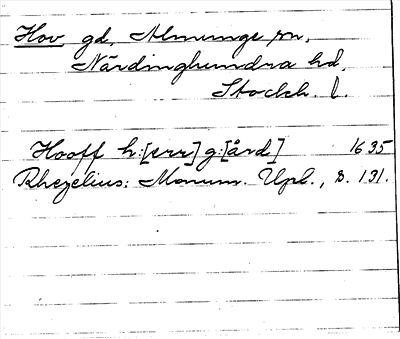 Hov, gd, Almunge sn,
Närdinghundra hd,
Stockh. l.
Hooff h:[err]g:[ård] 1635
Rhezelius: Monum. Upl., s. 131.